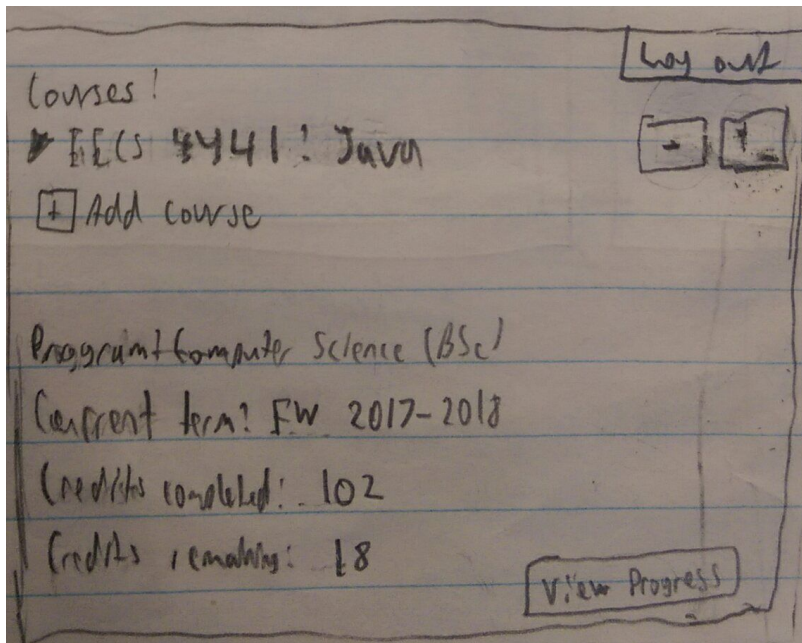 Log out
Courses:
EECS 4441: Java - +
+ Add course
Program: Computer Science (BSc)
Current term: FW 2017-2018
Credits completed: 102
Credits remaining: 18
View Progress